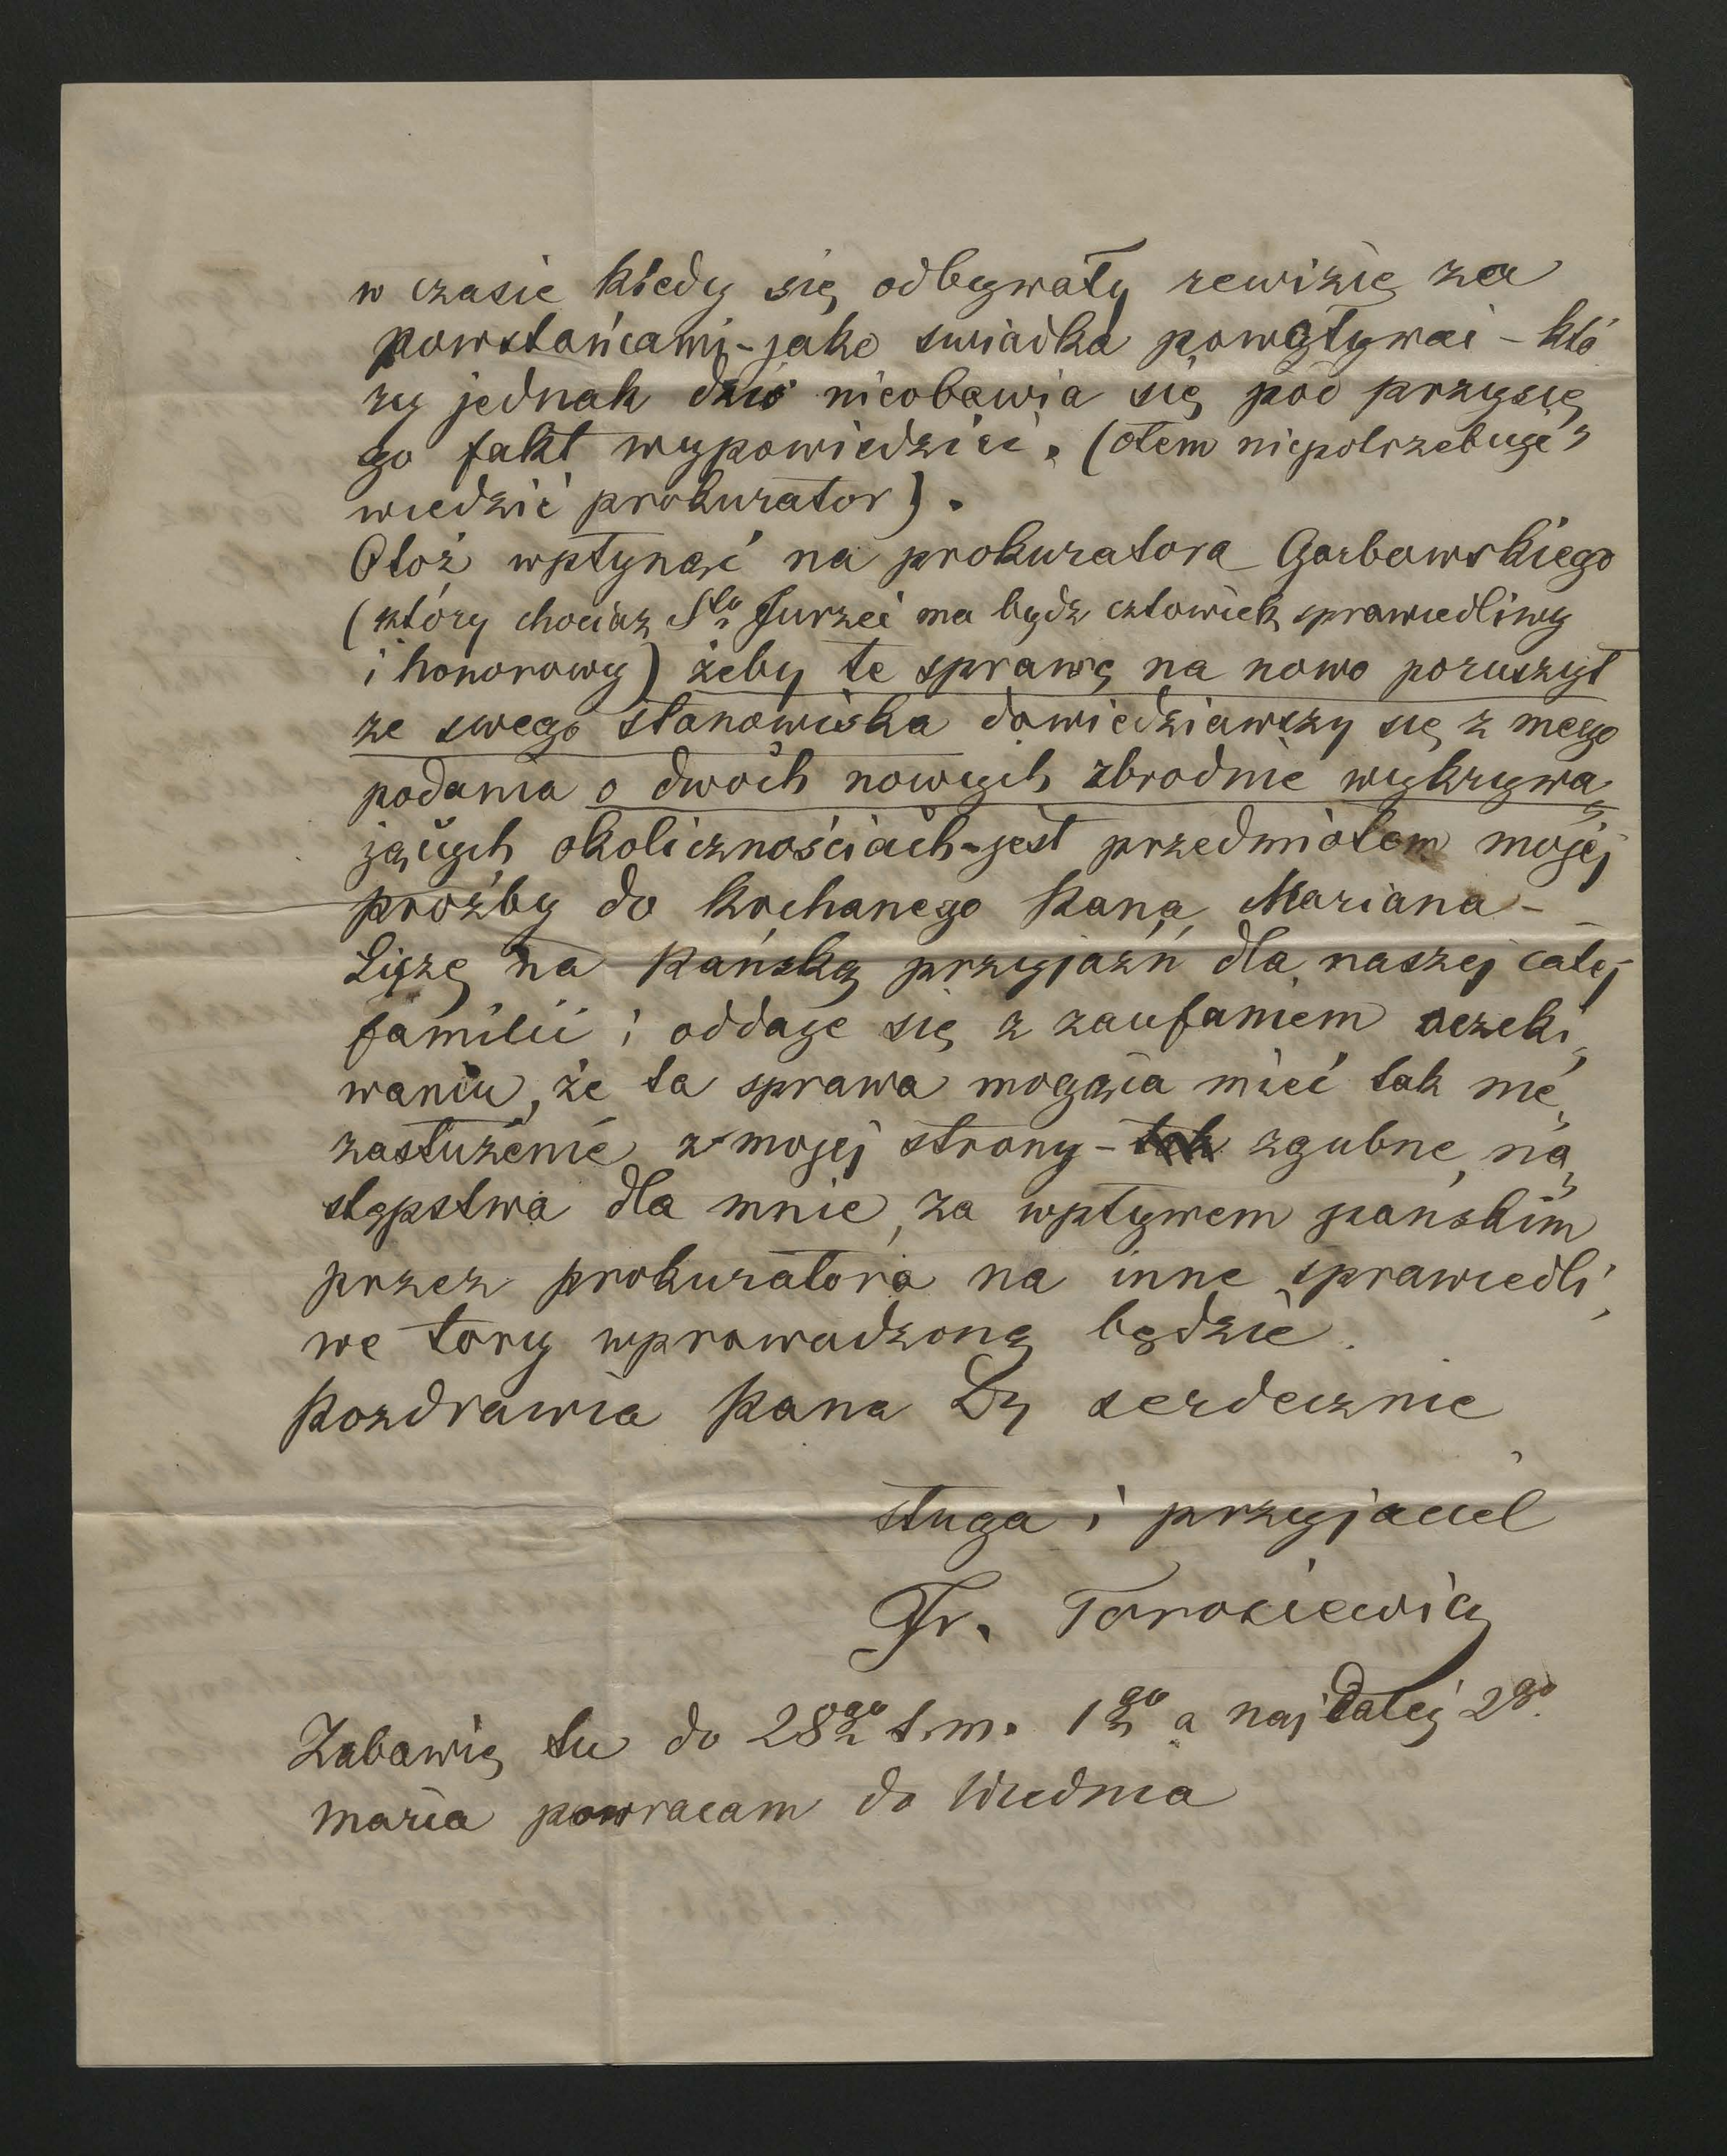 w czasie kiedy się odbywały rewizię za
powstańcami - jako swiadka powoływać - któ
ry jednak dziś nieobawia się pod przysię
go fakt wypowiedzieć. (otem niepotrzebuje
wiedzić prokurator).
Otoż wpłynąć na prokuratora Garbowskiego
(który chociaz Sto Jurzec ma bydz człowiek sprawiedliwy
i honorowy) żeby te sprawę na nowo poruszył
ze swego stanowiska dowiedziawszy się z mego
podania o dwóch nowych zbrodnie wykrywa
jących okolicznościach - jest przedmiotem mojej
prożby do kochanego Pana Mariana -
Liczę na Pańską przyjaźń dla naszej całej
familii i oddaje się z zaufaniem oczeki
waniu, że ta sprawa mogąca mieć tak nie
zasłużenie z mojej strony - zgubne na
stępstwa dla mnie, za wpływem pańskim
przez prokuratora na inne sprawiedli
we tory wprowadzoną będzie.
Pozdrawia Pana Dz serdecznie
sługa i przyjaciel
Fr. Torosiewicz
Zabawię tu do 28go t.m. 1go a najdalej 2go
marca powracam do Wiednia